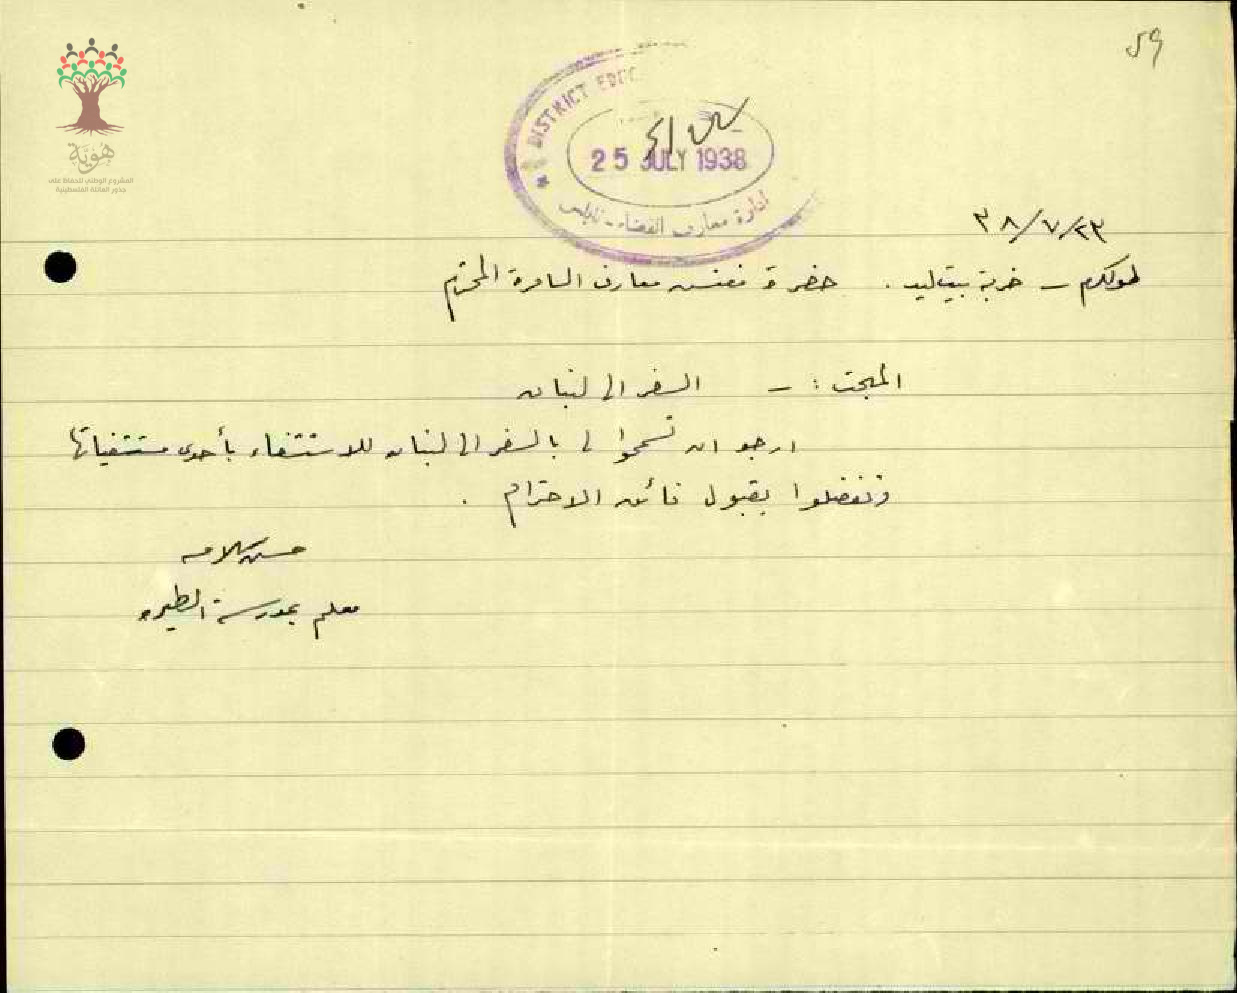 ٥٩
هوية
المشروع الوطني للحفاظ على
جذور العائلة الفلسطينية
DISTRICT EDUC
25 JULY 1938
ادارة معارف القضاء - نابلس
٢٣/٧/٣٨
طولكرم - خربة بيت ليد . حضرة مفتش معارف السامرة المحترم
المبحث : - السفر الى لبنان
ارجو ان تسمحوا لي بالسفر الى لبنان للاستشفاء بأحدى مستشفياتها
وتفضلوا بقبول فائق الاحترام .
حسن سلامه
معلم بمدرسة الطيره